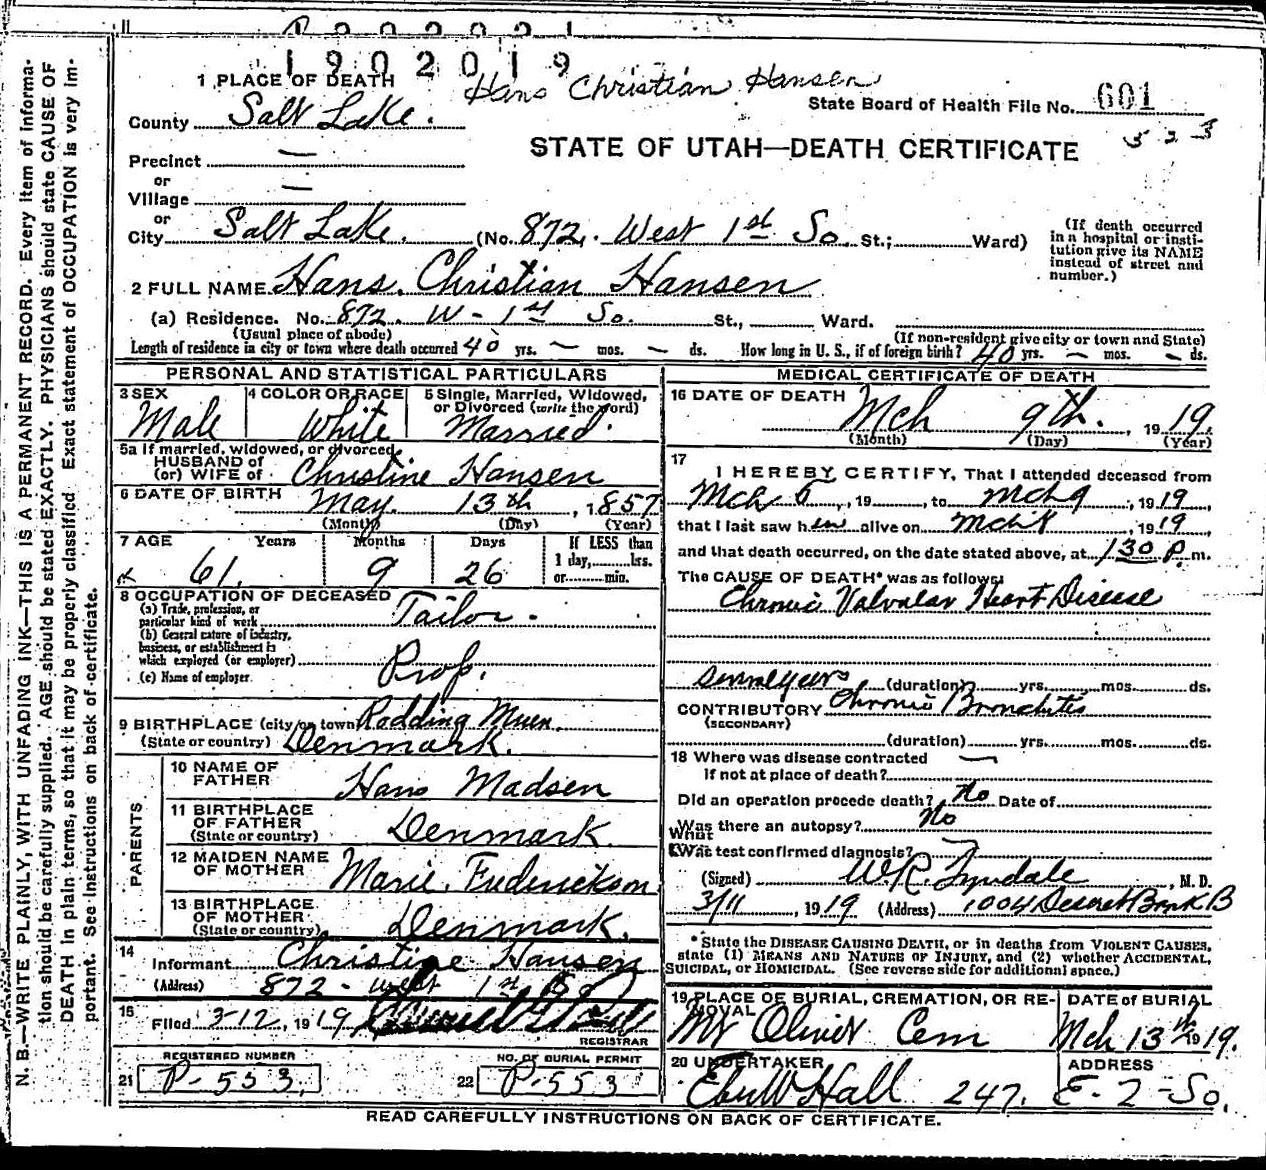 1902019
Hans Christian Hansen
1 PLACE OF DEATH
State Board of Health File No. 601
County Salt Lake.
STATE OF UTAH—DEATH CERTIFICATE
Precinct —
or
Village —
or
City Salt Lake. (No. 872. West 1st So. St.; Ward)
(If death occurred in a hospital or insti-
tution give its NAME instead of street and number.)
2 FULL NAME Hans. Christian Hansen
(a) Residence. No. 872. W - 1st So. St., Ward.
(Usual place of abode) (If non-resident give city or town and State)
Length of residence in city or town where death occurred 40 yrs. — mos. — ds. How long in U. S., if of foreign birth? 40 yrs. — mos. — ds.
PERSONAL AND STATISTICAL PARTICULARS
3 SEX Male
4 COLOR OR RACE White
5 Single, Married, Widowed, or Divorced (write the word) Married.
5a If married, widowed, or divorced
HUSBAND of
(or) WIFE of Christine Hansen
6 DATE OF BIRTH May. 13th, 1857
(Month) (Day) (Year)
7 AGE Years Months Days If LESS than
1 day, hrs.
or min.
61. 9 26
8 OCCUPATION OF DECEASED
(a) Trade, profession, or
particular kind of work Tailor.
(b) General nature of industry,
business, or establishment in
which employed (or employer) Prop.
(c) Name of employer
9 BIRTHPLACE (city or town) Rodding
(State or country) Denmark.
PARENTS
10 NAME OF FATHER Hans Madsen
11 BIRTHPLACE OF FATHER
(State or country) Denmark.
12 MAIDEN NAME OF MOTHER Marie. Frederickson
13 BIRTHPLACE OF MOTHER
(State or country) Denmark.
14 Informant Christine Hansen
(Address) 872 - West 1st So
15 Filed 3-12, 1919
REGISTRAR
REGISTERED NUMBER
21 P-553.
NO. OF BURIAL PERMIT
22 P-553
MEDICAL CERTIFICATE OF DEATH
16 DATE OF DEATH
Mch 9th., 1919.
(Month) (Day) (Year)
17 I HEREBY CERTIFY, That I attended deceased from
Mch 6, 19 to Mch 9, 1919
that I last saw him alive on Mch 8, 1919
and that death occurred, on the date stated above, at 130 P. m.
The CAUSE OF DEATH* was as follows:
Chronic Valvular Heart Disease
Some years (duration) yrs. mos. ds.
CONTRIBUTORY Chronic Bronchitis
(SECONDARY)
(duration) yrs. mos. ds.
18 Where was disease contracted
if not at place of death? —
Did an operation precede death? No Date of
Was there an autopsy? No
What test confirmed diagnosis?
(Signed) W.R. Tyndale, M. D.
3/11, 1919 (Address) 1004 Deseret Bank B
*State the DISEASE CAUSING DEATH, or in deaths from VIOLENT CAUSES,
state (1) MEANS AND NATURE OF INJURY, and (2) whether ACCIDENTAL,
SUICIDAL, or HOMICIDAL. (See reverse side for additional space.)
19 PLACE OF BURIAL, CREMATION, OR RE-
MOVAL
Mt Olivet Cem
DATE of BURIAL
Mch 13th 1919.
20 UNDERTAKER
Eber W Hall
ADDRESS
247. E - 2 - So.
READ CAREFULLY INSTRUCTIONS ON BACK OF CERTIFICATE.
N. B.—WRITE PLAINLY, WITH UNFADING INK—THIS IS A PERMANENT RECORD. Every item of informa-
tion should be carefully supplied. AGE should be stated EXACTLY. PHYSICIANS should state CAUSE OF
DEATH in plain terms, so that it may be properly classified. Exact statement of OCCUPATION is very im-
portant. See instructions on back of certificate.